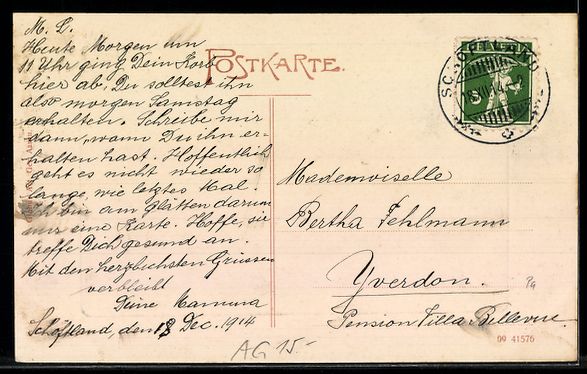 M. L.
Heute Morgen um
11 Uhr ging Dein Korb
hier ab, Du solltest ihn
also morgen Samstag
erhalten. Schreibe mir
dann, wann Du ihn er-
halten hast. Hoffentlich
geht es nicht wieder so
lange wie letztes Mal.
Ich bin am glätten darum
nur eine Karte. Hoffe, sie
treffe Dich gesund an.
Mit den herzlichsten Grüssen
verbleibt
Deine Mamma
Schöftland, den 18 Dec. 1914
POSTKARTE.
SCHÖFTLAND
5
Mademoiselle
Bertha Fehlmann
Yverdon.
Pension Villa Bellevue.
09 41576
AG 15.-